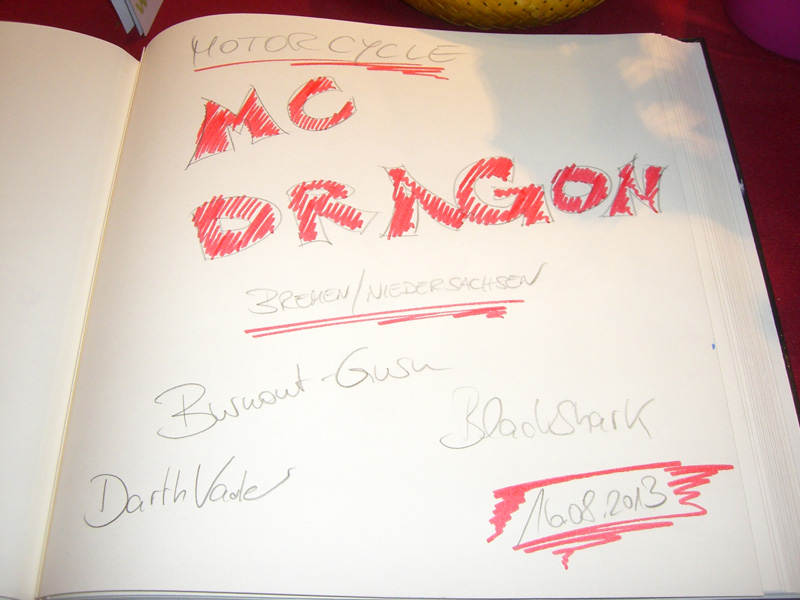 MOTORCYCLE
MC
DRAGON
BREMEN/NIEDERSACHSEN
Burnout-
BlackShark
DarthVader
16.08.2013